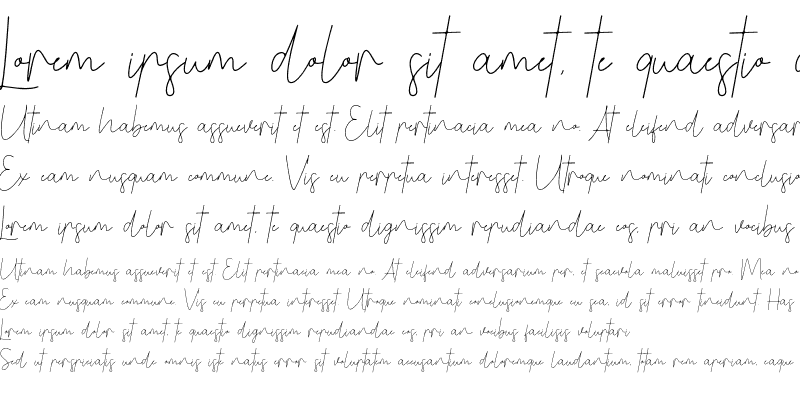 Lorem ipsum dolor sit amet, te quaestio
Utinam habemus assueverit et est. Elit pertinacia mea no. At eleifend adversar
Ex eam nusquam commune. Vis eu perpetua interesset. Utroque nominati conclusio
Lorem ipsum dolor sit amet, te quaestio dignissim repudiandae eos, pri an vocibus
Utinam habemus assueverit et est Elit pertinacia mea no At eleifend adversarium per, et scaevola maluisset pro Mea no
Ex eam nusquam commune Vis eu perpetua interesset Utroque nominati conclusionemque eu sea, id sit error tincidunt Has
Lorem ipsum dolor sit amet, te quaestio dignissim repudiandae eos, pri an vocibus facilisis voluptari
Sed ut perspiciatis unde omnis iste natus error sit voluptatem accusantium doloremque laudantium, totam rem aperiam, eaque